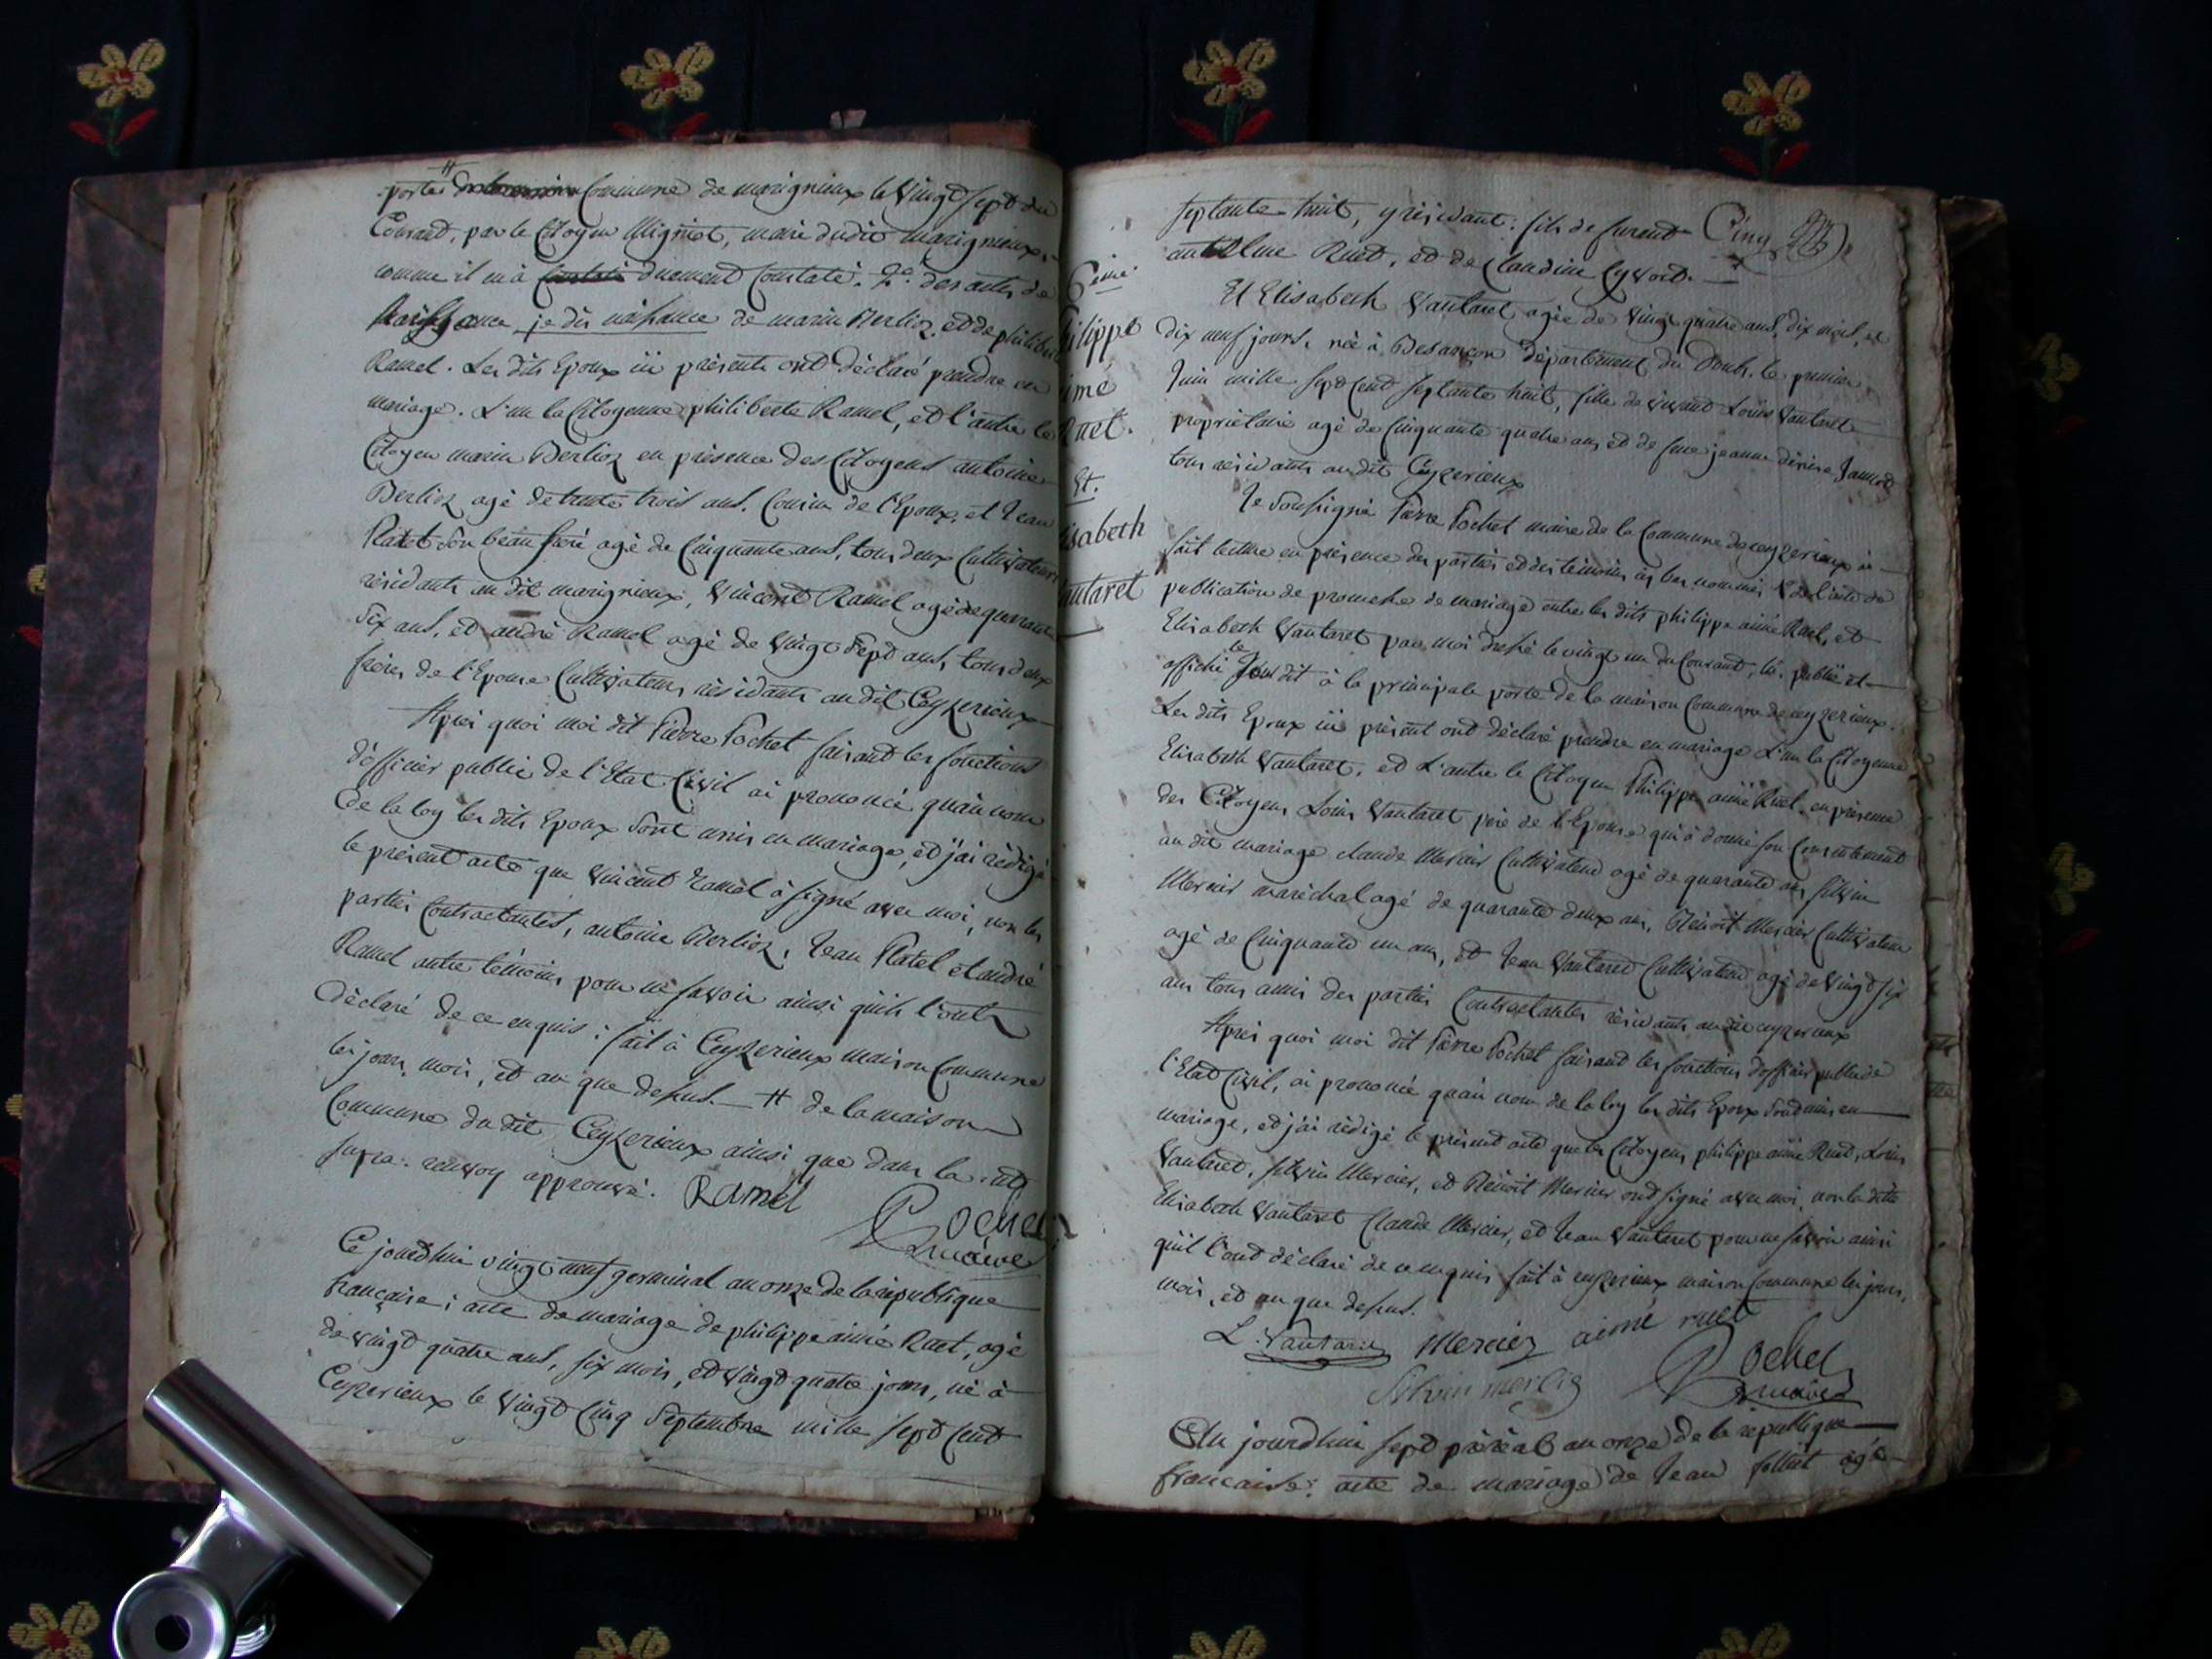 porte # commune de marignieux le vingt sept du
Courant, par le Citoyen Migniot, maire dudit marignieux,
comme il m'a duement Constaté. 2° des actes de
naissance je dis naissance de marin Berlioz, et de philiberte
Ramel. Les dits Epoux ici présents ont déclaré prendre en
mariage. L'un la Citoyenne philiberte Ramel, et l'autre le
Citoyen marin Berlioz en présence des Citoyens antoine
Berlioz agé de trente trois ans, Cousin de l'Epoux, et Jean
Platel son beau frere agé de Cinquante ans, tous deux Cultivateurs
résidants au dit marignieux, Vincent Ramel agé de quarante
six ans, et andré Ramel agé de vingt sept ans, tous deux
freres de l'Epouse Cultivateurs résidants au dit Ceyzerieux
Après quoi moi dit Pierre Pochet faisant les fonctions
d'officier public de l'Etat Civil ai prononcé qu'au nom
de la loy les dits Epoux sont unis en mariage, et j'ai rédigé
le présent acte que vincent Ramel à signé avec moi, non les
parties Contractantes, antoine Berlioz, Jean Platel et andré
Ramel autre témoins pour ne savoir ainsi qu'ils l'ont
déclaré de ce enquis : fait à Ceyzerieux maison Commune
les jour, mois, et an que dessus. — # de la maison
Commune du dit Ceyzerieux ainsi que dans la
supra. renvoy approuvé. Ramel
Pochet
maire
Ce jourd'hui vingt neuf germinal an onze de la république
française ; acte de mariage de philippe aimé Ruet, agé
de vingt quatre ans, six mois, et vingt quatre jours, né à
Ceyzerieux le vingt cinq Septembre mille sept cent
6eme.
hilippe
imé
Ruet.
Et.
isabeth
autaret
septante huit, y résidant : fils de furent Cinq
antelme Ruet, et de Claudine
Et Elisabeth Vautaret agée de vingt quatre ans, dix mois, et
dix neuf jours, née à Besançon département du Doubs, le premier
Juin mille sept cent septante huit, fille de vivant Louis Vautaret
propriétaire agé de Cinquante quatre ans, et de fue jeanne
tous résidants au dit Ceyzerieux
Je soussigné Pierre Pochet maire de la Commune de ceyzerieux ai
fait lecture en présence des parties et des témoins ci bas nommés 1° de l'acte de
publication de promesse de mariage entre les dits philippe aimé Ruet, et
Elisabeth Vautaret par moi dressé le vingt un du Courant, lu, publié et
affiché le Jour dit à la principale porte de la maison Commune de ceyzerieux.
Les dits Epoux ici présent ont déclaré prendre en mariage L'un la Citoyenne
Elisabeth Vautaret, et L'autre le Citoyen Philippe aimé Ruet, en présence
des Citoyens Louis Vautaret pere de l'Epouse qui à donné son Consentement
au dit mariage claude Mercier Cultivateur agé de quarante ans, silvin
Mercier maréchal agé de quarante deux ans, Benoit Mercier Cultivateur
agé de Cinquante un ans, et Jean Vautaret Cultivateur agé de vingt six
ans tous amis des parties Contractantes résidants au dit ceyzerieux
Après quoi moi dit Pierre Pochet faisant les fonctions d'officier public de
l'Etat Civil, ai prononcé qu'au nom de la loy les dits Epoux sont unis en
mariage, et j'ai rédigé le présent acte que les Citoyens philippe aimé Ruet, Louis
Vautaret, silvin Mercier, et Benoit Mercier ont signé avec moi, non la ditte
Elisabeth Vautaret Claude Mercier, et Jean Vautaret pour ne savoir ainsi
qu'il l'ont déclaré de ce enquis fait à ceyzerieux maison Commune les jours,
mois, et an que dessus.
L. Vautaret Mercier aimé ruet
Silvin Pochet
maire
Au jourd'hui sept prérial an onze de la république
française : acte de mariage de Jean agé